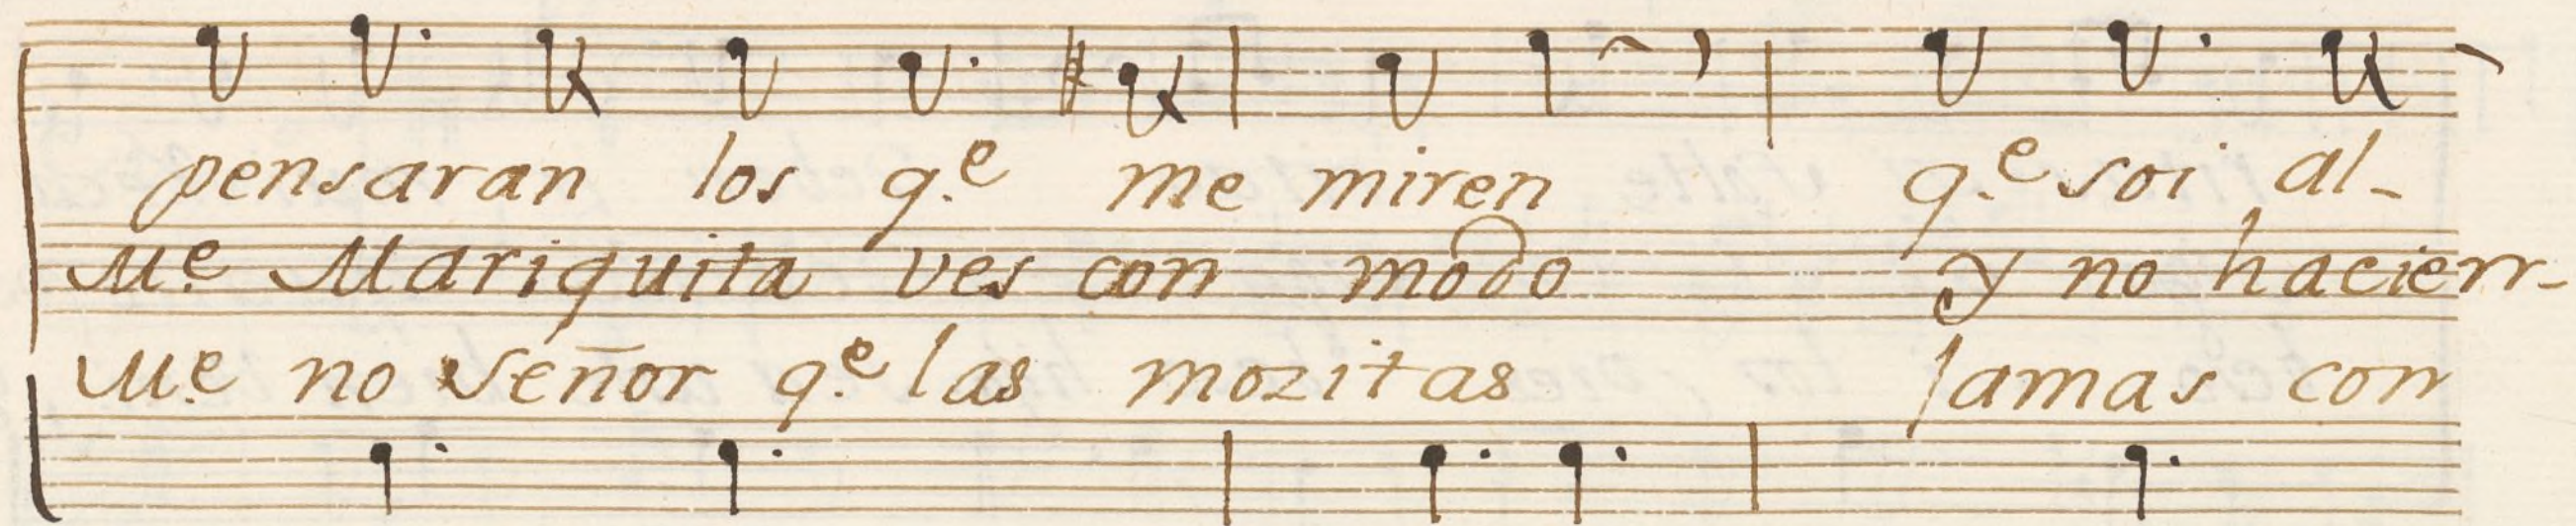 pensaran los q.e me miren q.e soi al-
M.e Mariquita ves con modo y no hacierr-
M.e no Señor q.e las mozitas Jamas con